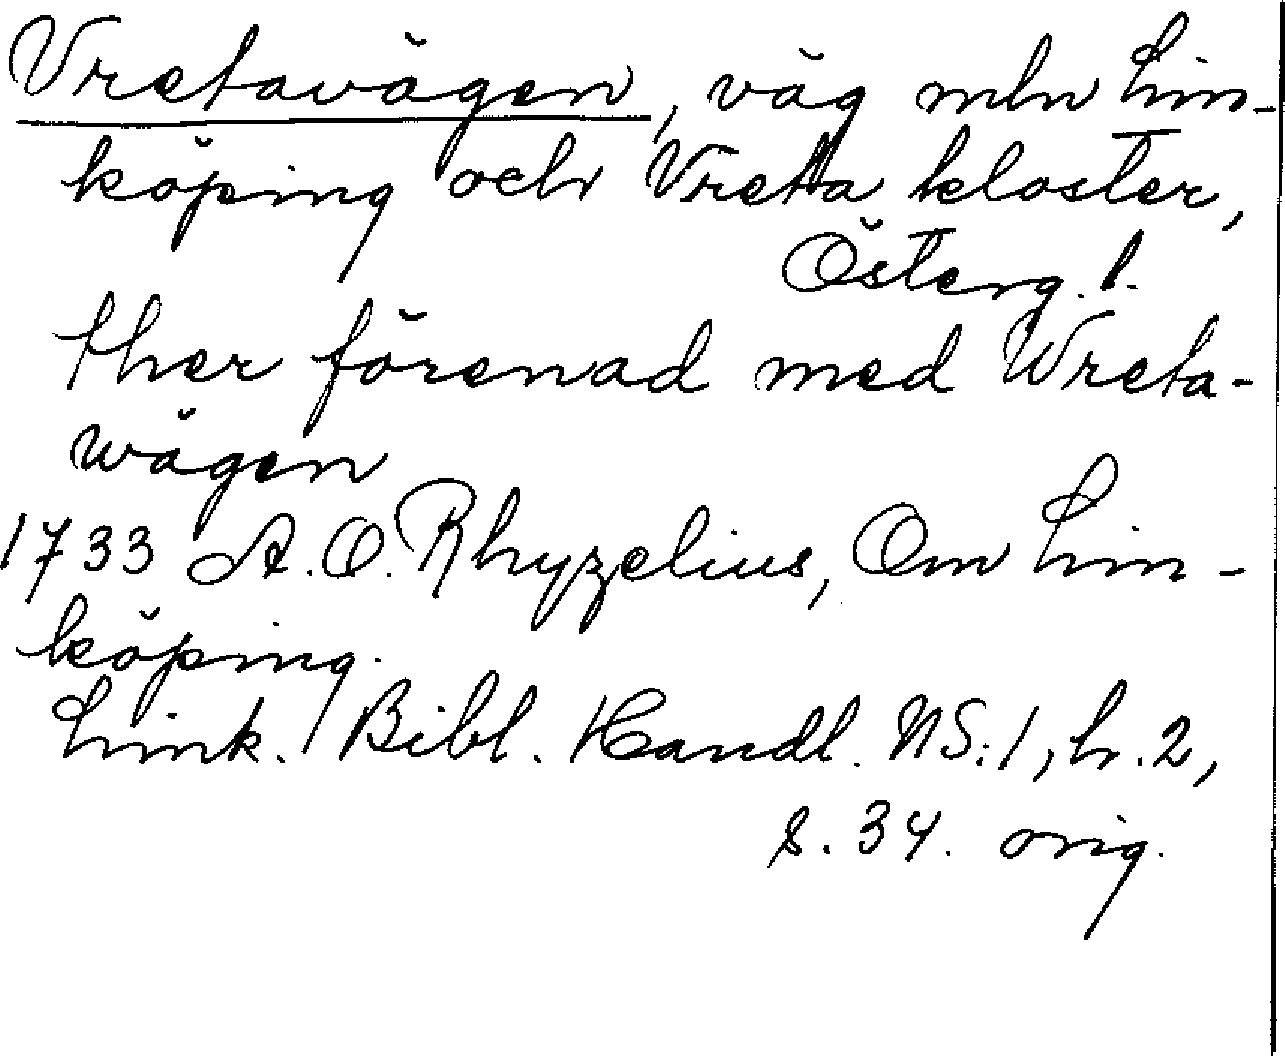 Vretavägen, väg mln Lin-
köping och Vreta kloster,
Österg. l.
ther förenad med Wreta-
wägen
1733 A. O. Rhyzelius, Om Lin-
köping.
Link. Bibl. Handl. NS:1, h. 2,
s. 34. orig.